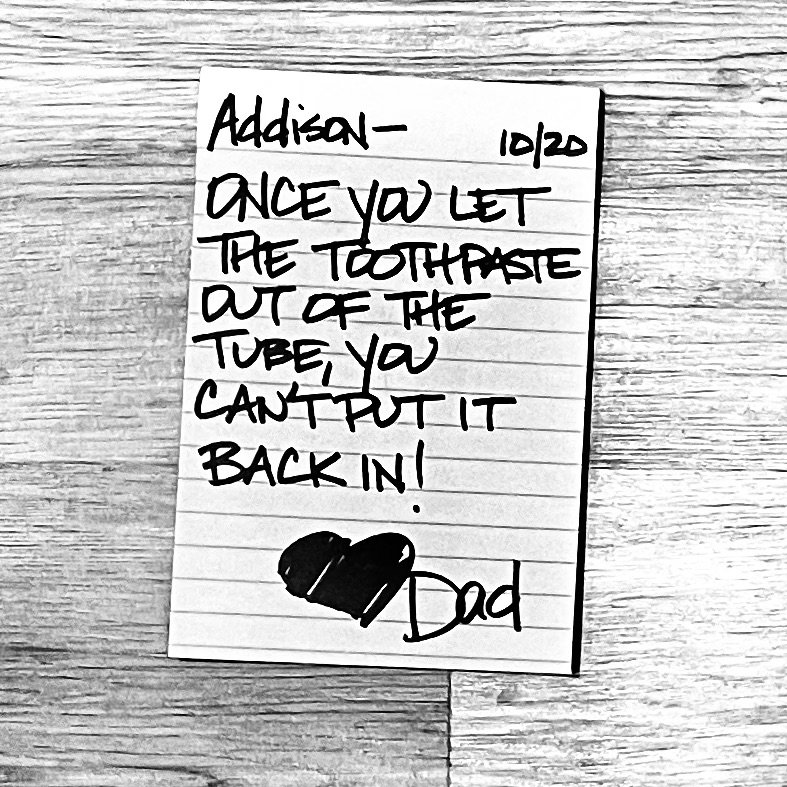 Addison— 10/20
ONCE YOU LET
THE TOOTHPASTE
OUT OF THE
TUBE, YOU
CAN'T PUT IT
BACK IN!
Dad